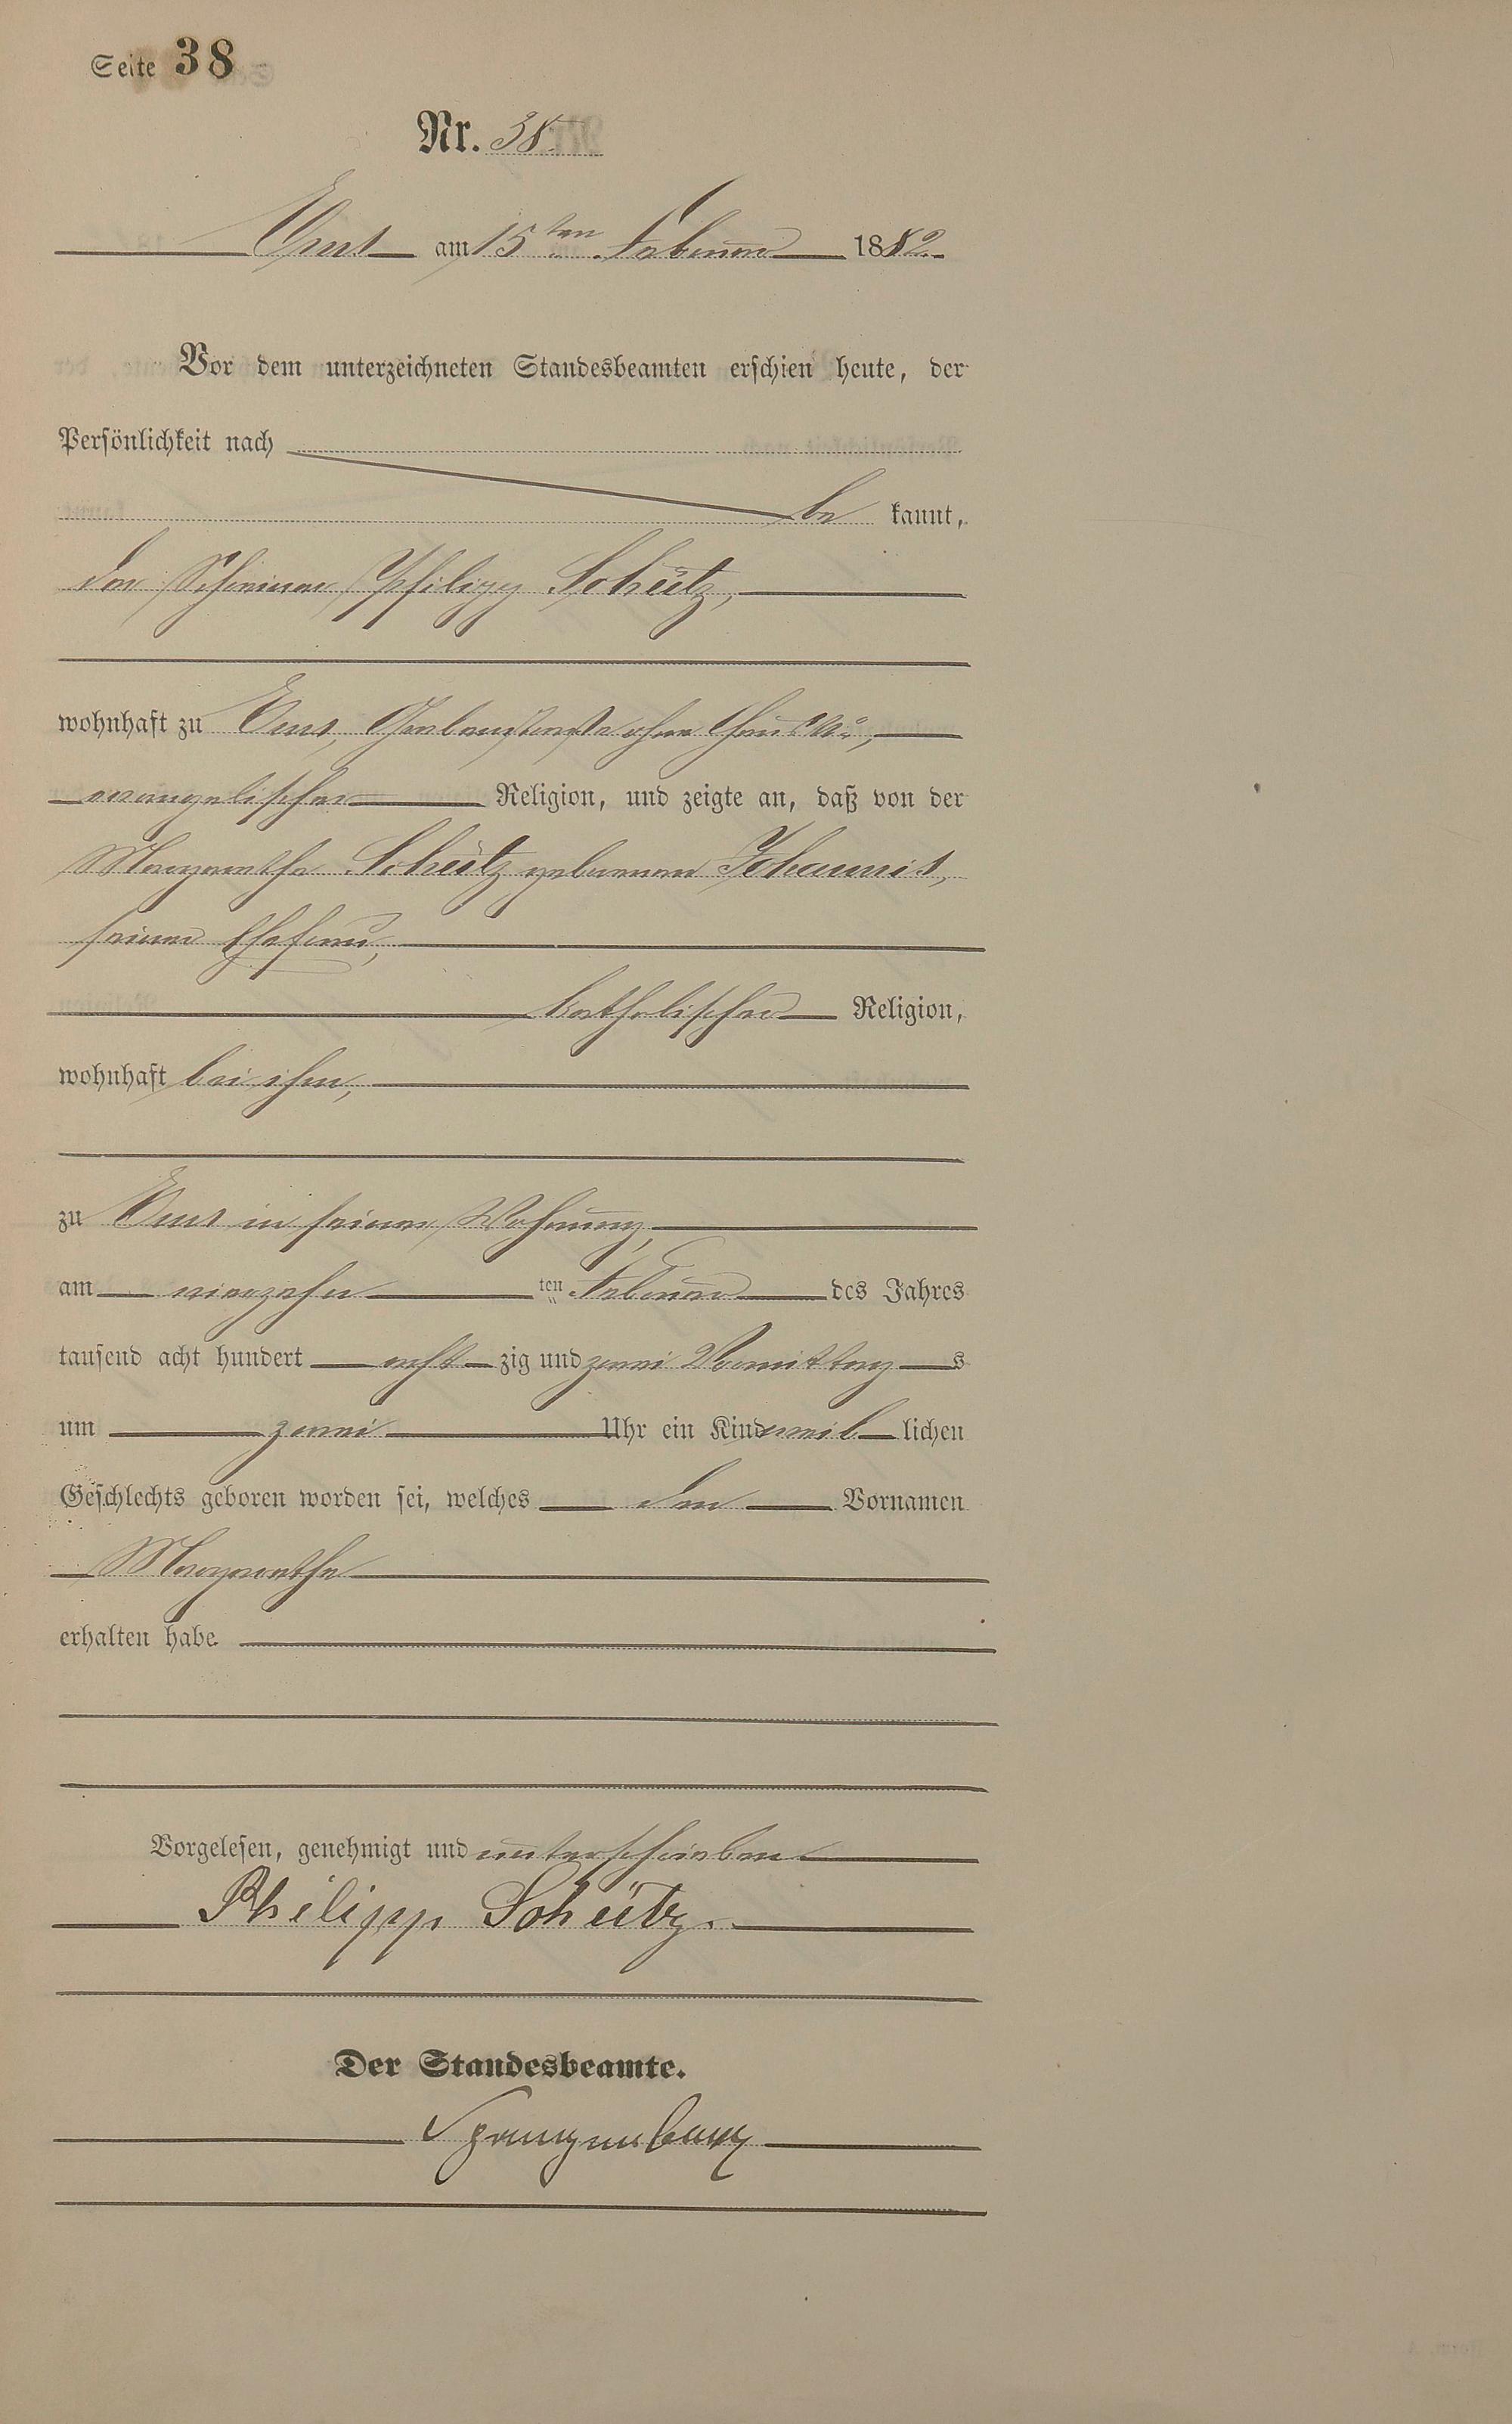 Seite 38
Nr. 38.
Ems am 15ten Februar 1882.
Vor dem unterzeichneten Standesbeamten erschien heute, der
Persönlichkeit nach
be kannt,
der Schreiner Philipp Schütz,
wohnhaft zu Ems, ohne Haus No,
evangelischer Religion, und zeigte an, daß von der
Margarethe Schütz geborenen Johannis,
seiner Ehefrau,
katholischer Religion,
wohnhaft bei ihm,
zu Ems in seiner Wohnung,
am vierzehn ten Februar des Jahres
tausend acht hundert acht zig und zwei Vormittag s
um zwei Uhr ein Kind weib lichen
Geschlechts geboren worden sei, welches den Vornamen
Margarethe
erhalten habe
Vorgelesen, genehmigt und unterschrieben
Philipp Schütz.
Der Standesbeamte.
Spangenberg